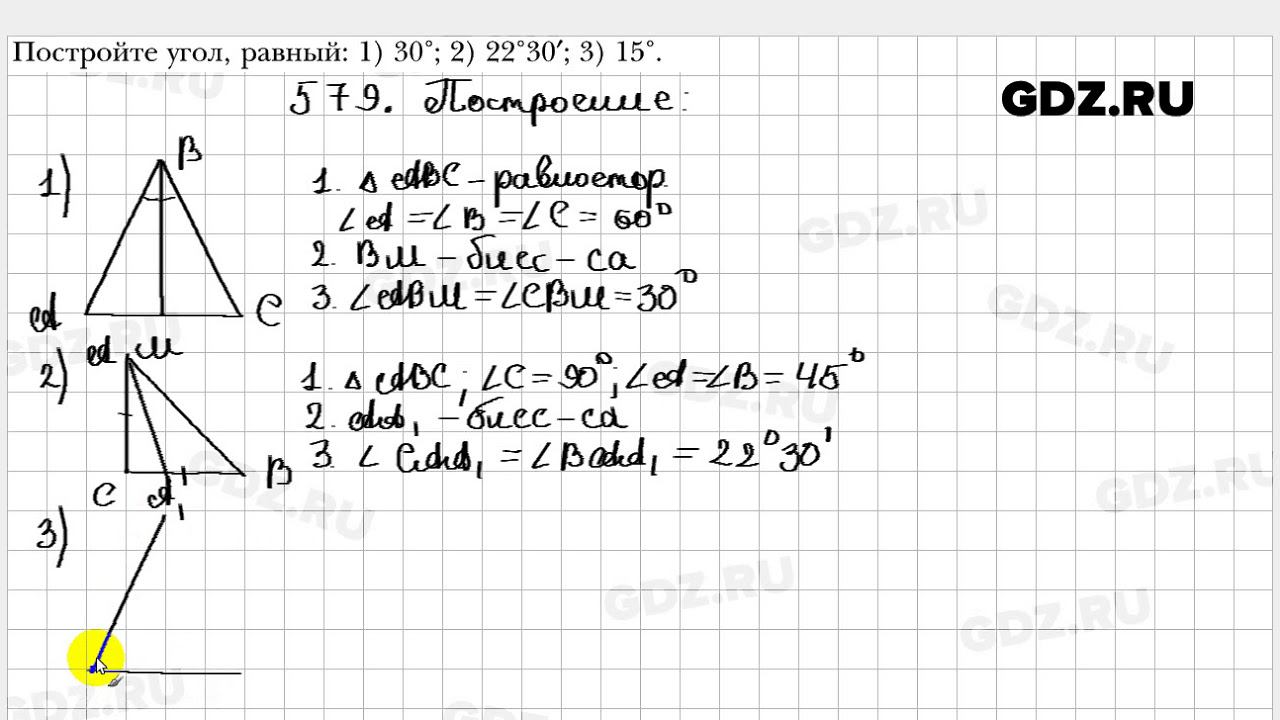 Постройте угол, равный: 1) 30°; 2) 22°30′; 3) 15°.
579. Построение:
GDZ.RU
1)
B
A
C
M
1. △ ABC – равностор.
∠A = ∠B = ∠C = 60°
2. BM – бисс–са
3. ∠ABM = ∠CBM = 30°
2)
A
C
A₁
B
1. △ ABC, ∠C = 90°; ∠A = ∠B = 45°
2. AA₁ – бисс–са
3. ∠CAA₁ = ∠BAA₁ = 22°30′
3)
GDZ.RU
GDZ.RU
GDZ.RU
GDZ.RU
GDZ.RU
GDZ.RU
GDZ.RU
GDZ.RU
GDZ.RU
GDZ.RU
GDZ.RU